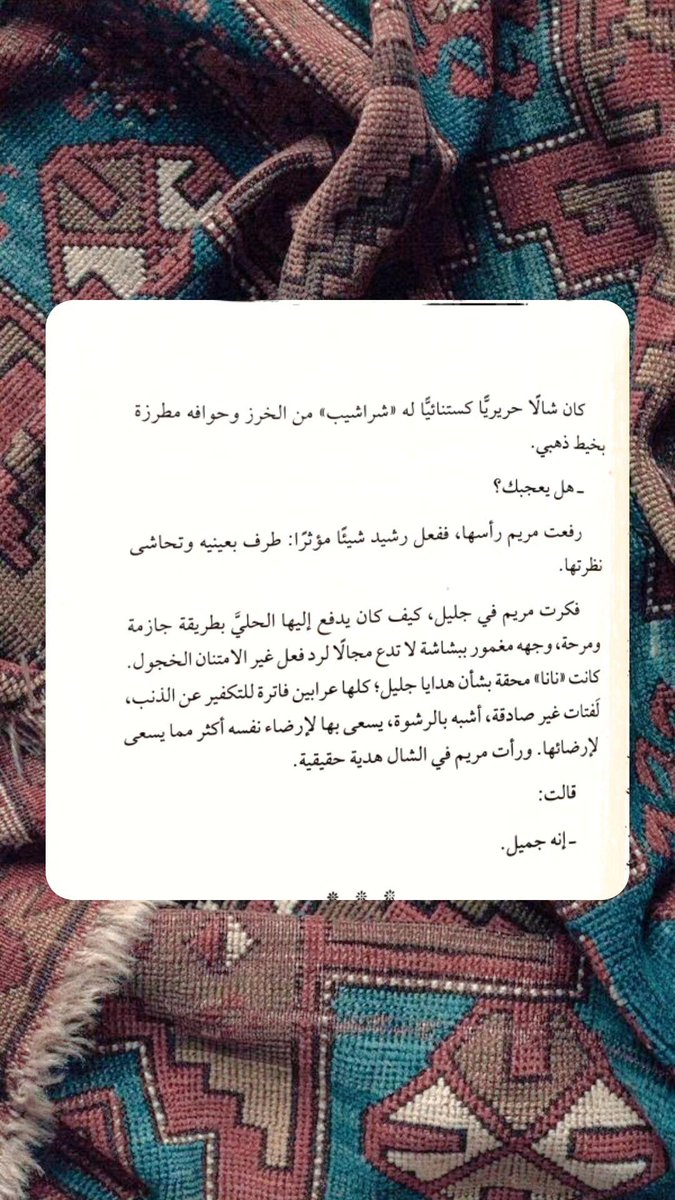 كان شالًا حريريًّا كستنائيًّا له «شراشيب» من الخرز وحوافه مطرزة
بخيط ذهبي.
ـ هل يعجبك؟
رفعت مريم رأسها، ففعل رشيد شيئًا مؤثرًا: طرف بعينيه وتحاشى
نظرتها.
فكرت مريم في جليل، كيف كان يدفع إليها الحليَّ بطريقة جازمة
ومرحة، وجهه مغمور ببشاشة لا تدع مجالًا لرد فعل غير الامتنان الخجول.
كانت «نانا» محقة بشأن هدايا جليل؛ كلها عرابين فاترة للتكفير عن الذنب،
لَفتات غير صادقة، أشبه بالرشوة، يسعى بها لإرضاء نفسه أكثر مما يسعى
لإرضائها. ورأت مريم في الشال هدية حقيقية.
قالت:
ـ إنه جميل.